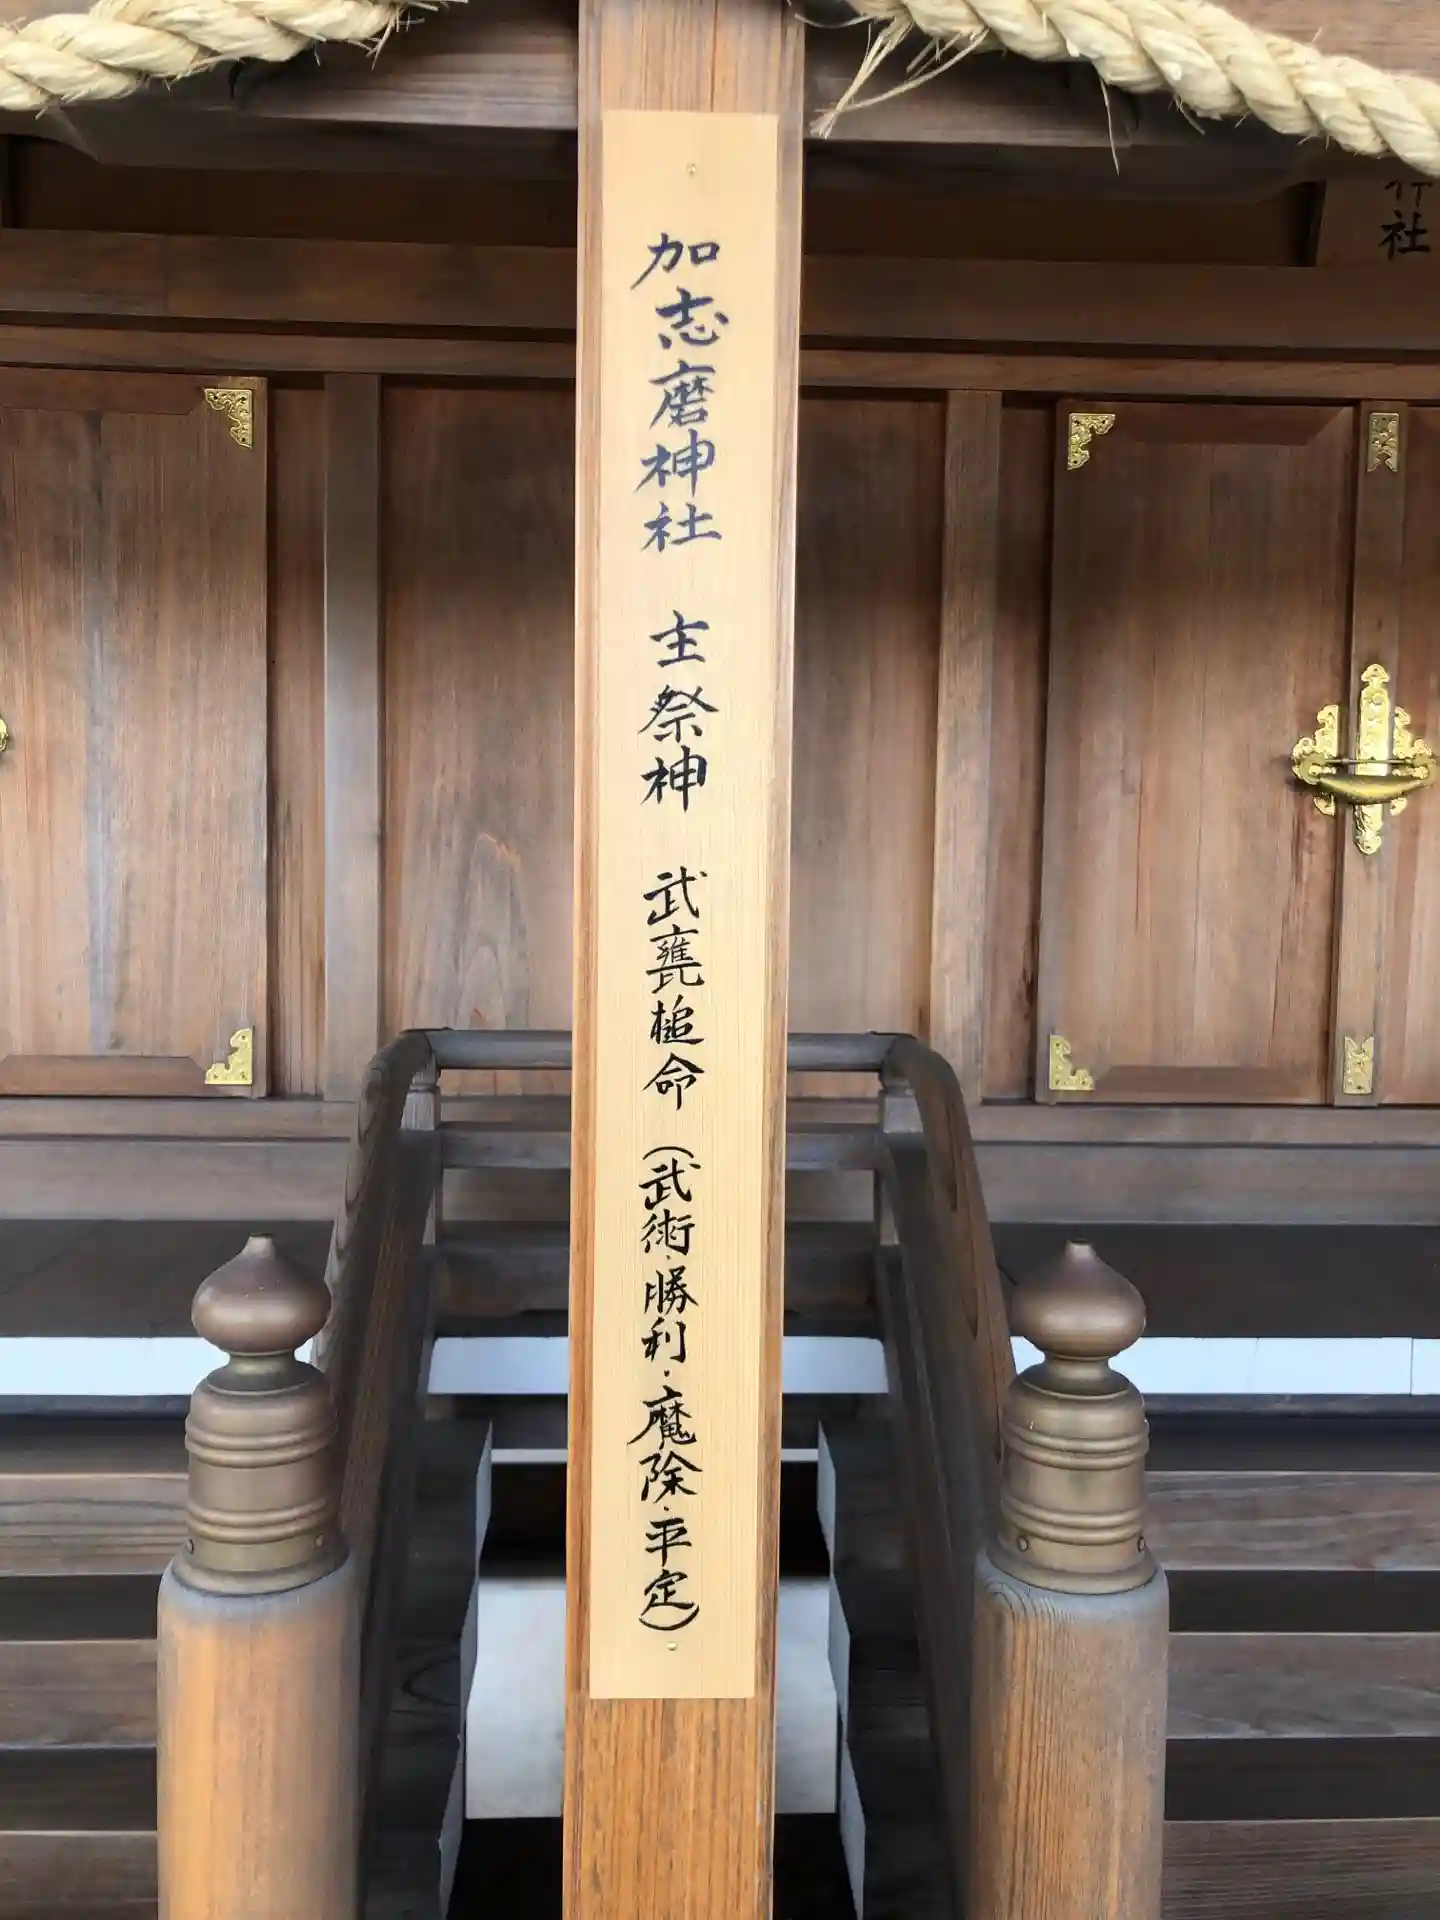 加志磨神社 主祭神 武甕槌命 (武術・勝利・魔除・平定)
社